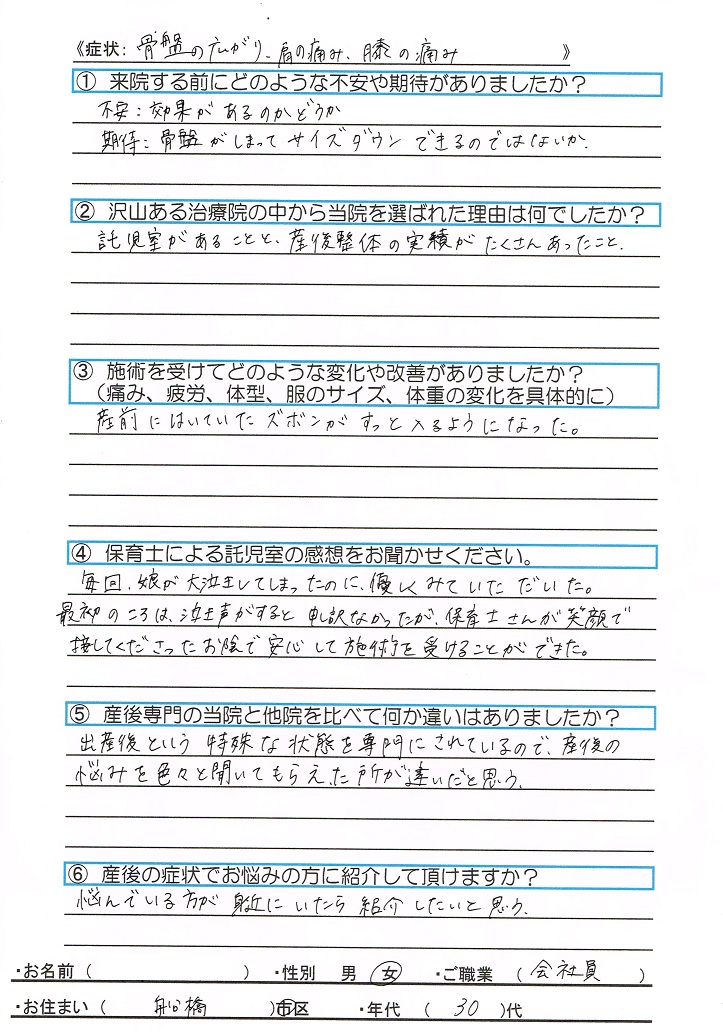 《症状: 骨盤の広がり、肩の痛み、膝の痛み 》
① 来院する前にどのような不安や期待がありましたか？
不安：効果があるのかどうか
期待：骨盤がしまってサイズダウンできるのではないか.
② 沢山ある治療院の中から当院を選ばれた理由は何でしたか？
託児室があることと、産後整体の実績がたくさんあったこと.
③ 施術を受けてどのような変化や改善がありましたか？
（痛み、疲労、体型、服のサイズ、体重の変化を具体的に）
産前にはいていたズボンがすっと入るようになった。
④ 保育士による託児室の感想をお聞かせください。
毎回、娘が大泣きしてしまったのに、優しくみていただいた。
最初のころは、泣き声がすると申訳なかったが、保育士さんが笑顔で
接してくださったお陰で安心して施術を受けることができた。
⑤ 産後専門の当院と他院を比べて何か違いはありましたか？
出産後という特殊な状態を専門にされているので、産後の
悩みを色々と聞いてもらえた所が違いだと思う.
⑥ 産後の症状でお悩みの方に紹介して頂けますか？
悩んでいる方が身近にいたら紹介したいと思う.
・お名前（ ） ・性別 男 女 ・ご職業 （ 会社員 ）
・お住まい（ 船橋 ）市区 ・年代 （ 30 ）代